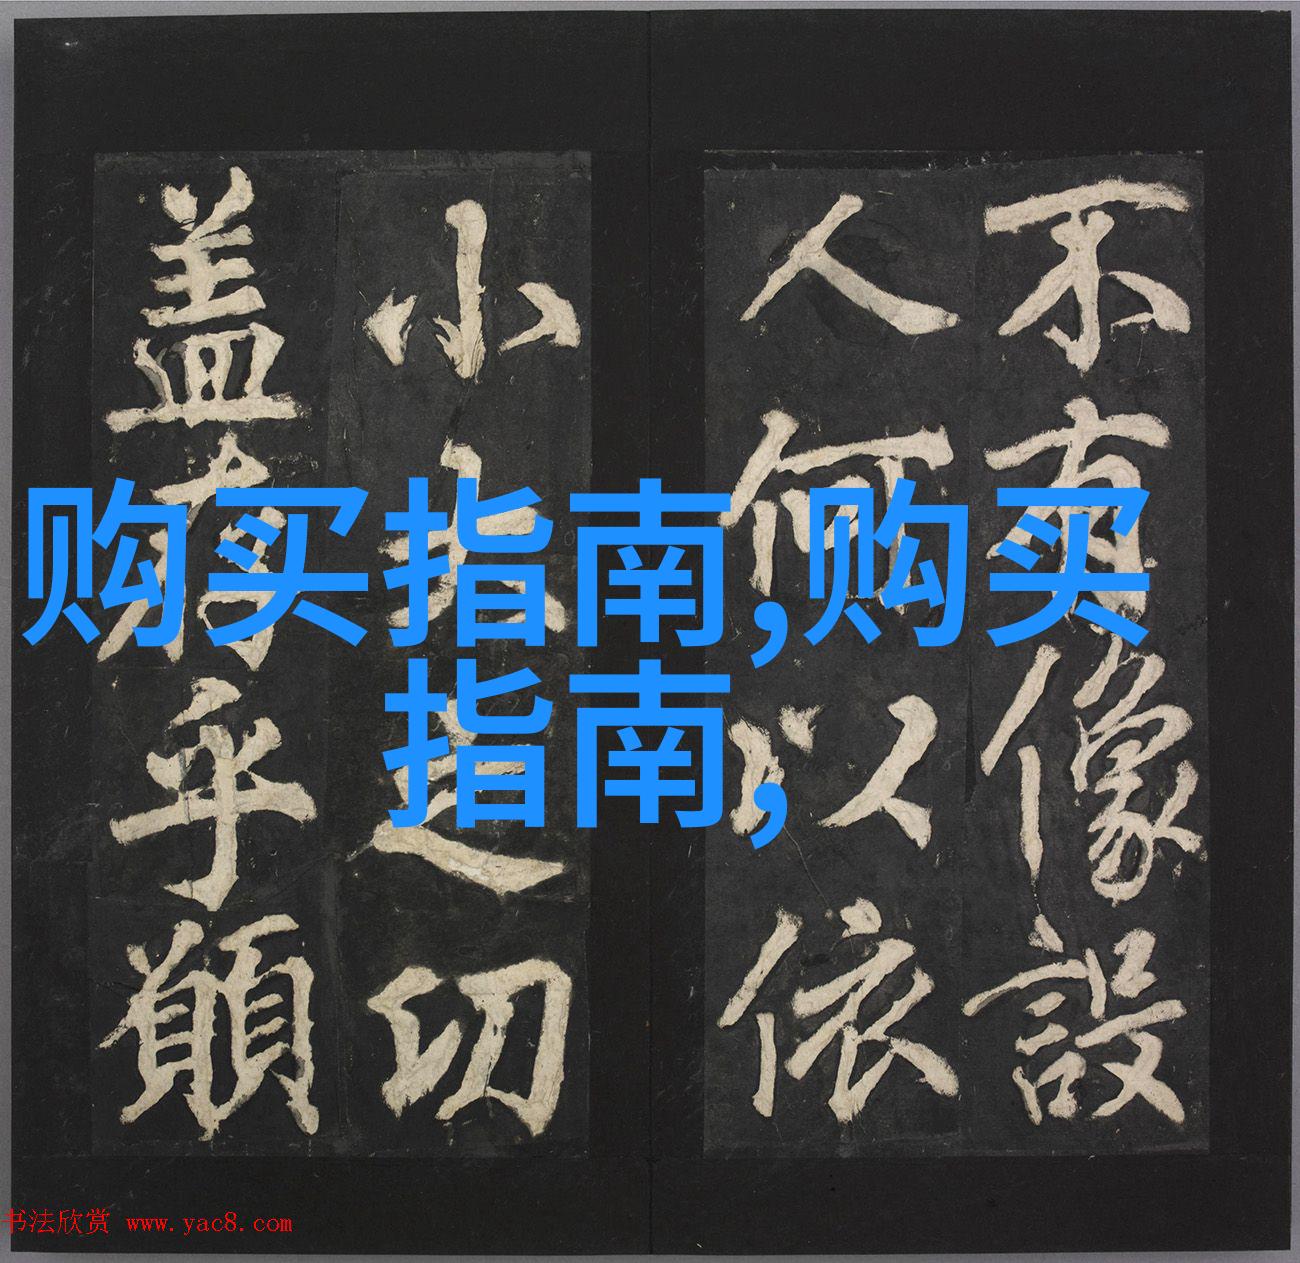 不有像設
人何以依
小大之切
盖乎願
购买指南,购买
指南,
书法欣赏 www.yac8.com